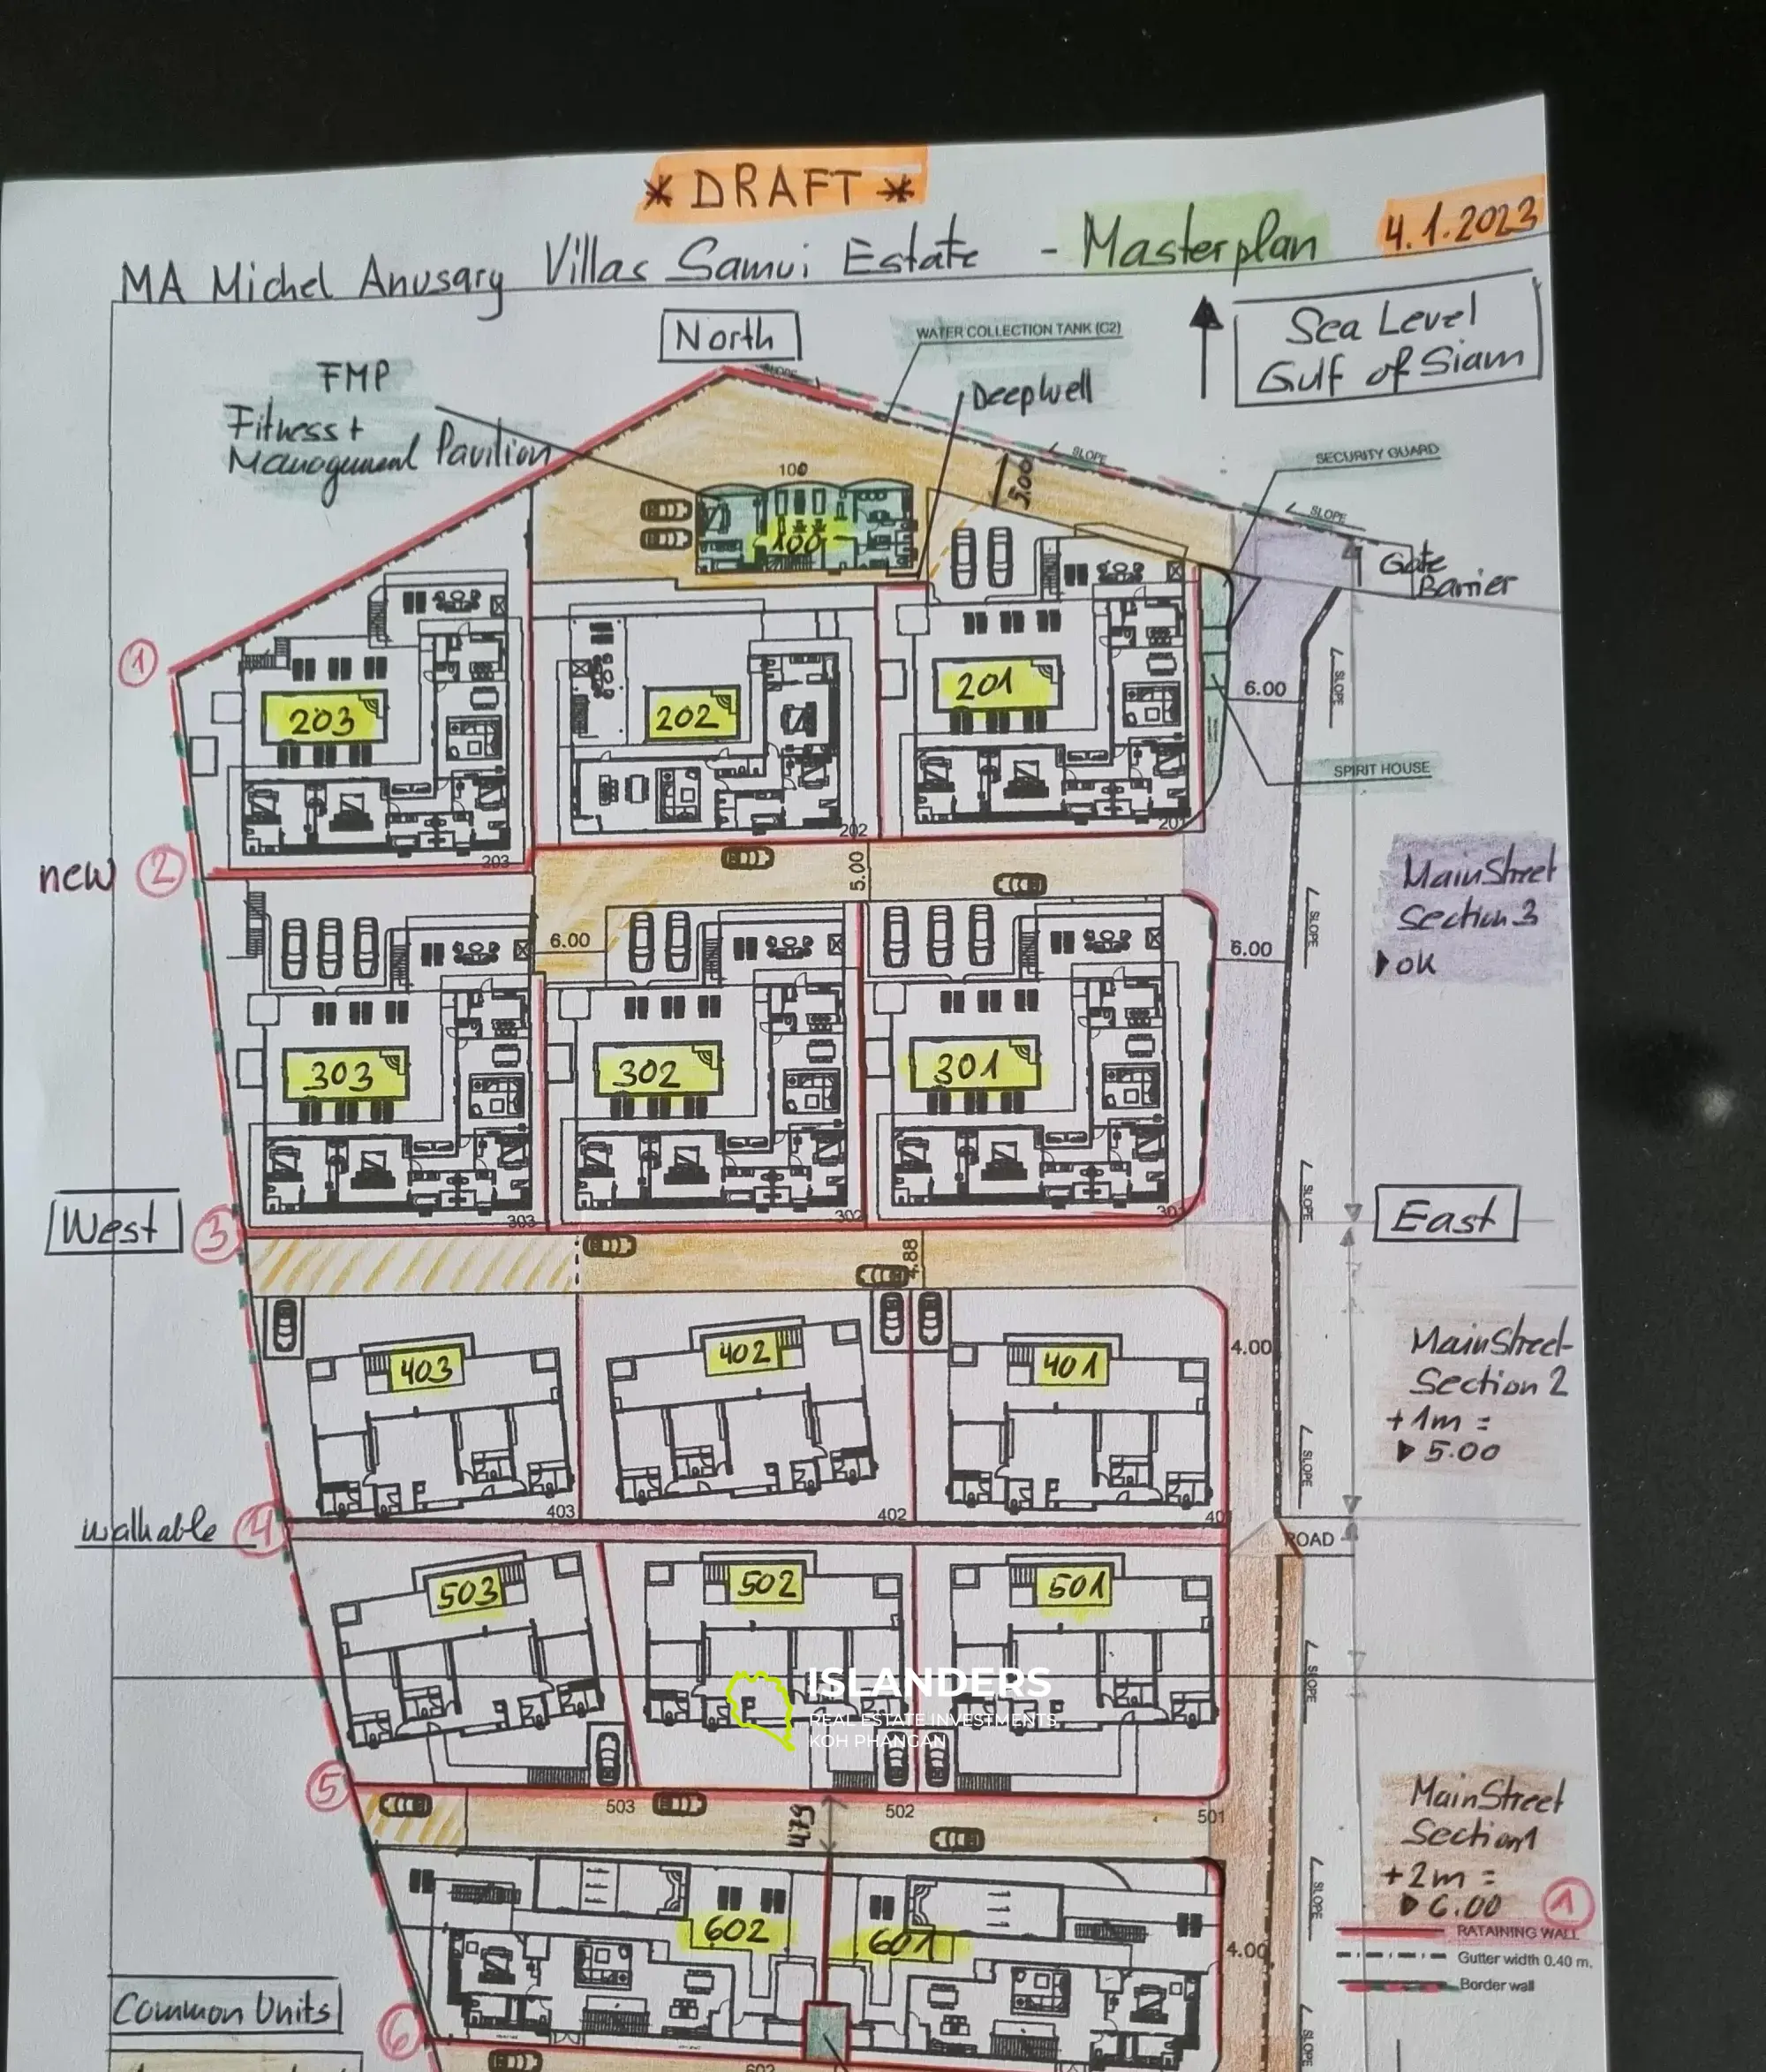 * DRAFT *
MA Michel Anusary Villas Samui Estate - Masterplan 4.1.2023
North
WATER COLLECTION TANK (C2)
Sea Level
Gulf of Siam
FMP
Fitness +
Management Pavilion
Deepwell
SLOPE
SLOPE
SECURITY GUARD
SLOPE
100
5.00
100
Gate
Barrier
1
203
202
201
6.00
SLOPE
SPIRIT HOUSE
203
202
201
new 2
5.00
MainStreet
Section 3
ok
6.00
6.00
SLOPE
303
302
301
West
3
303
302
301
SLOPE
East
4.88
403
402
401
4.00
MainStreet
Section 2
+1m =
5.00
SLOPE
403
402
40
walkable 4
ROAD
503
502
501
SLOPE
ISLANDERS
REAL ESTATE INVESTMENTS
KOH PHANGAN
5
503
4.79
502
501
MainStreet
Section 1
+2m =
6.00
1
SLOPE
602
601
4.00
RATAINING WALL
Gutter width 0.40 m.
Border wall
Common Units
6
SLOPE
602